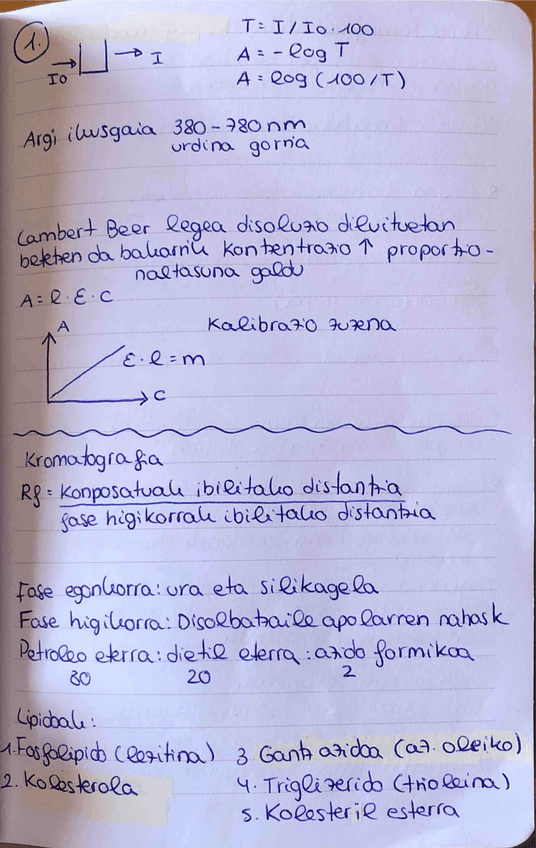 1.
T = I / I0 · 100
I0 → → I
A = - log T
A = log (100/T)
Argi ikusgaia 380-780 nm
urdina gorria
Lambert Beer legea disoluzio diluituetan
betetzen da bakarrik kontzentrazio ↑ proportzio-
naltasuna galdu
A = l · ε · c
A
Kalibrazio zuzena
ε · l = m
C
Kromatografia
Rf = Konposatuak ibilitako distantzia
fase higikorrak ibilitako distantzia
Fase egonkorra: ura eta silikagela
Fase higikorra: Disolbatzaile apolarren nahask
Petroleo eterra : dietil eterra : azido formikoa
80 20 2
Lipidoak:
1. Fosfolipido (lezitina)
2. Kolesterola
3. Gantz azidoa (az. oleiko)
4. Triglizerido (trioleina)
5. Kolesteril esterra